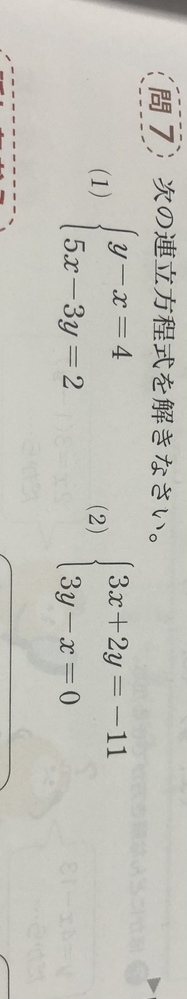 問7 次の連立方程式を解きなさい。
(1) { y－x＝4
5x－3y＝2
(2) { 3x＋2y＝－11
3y－x＝0